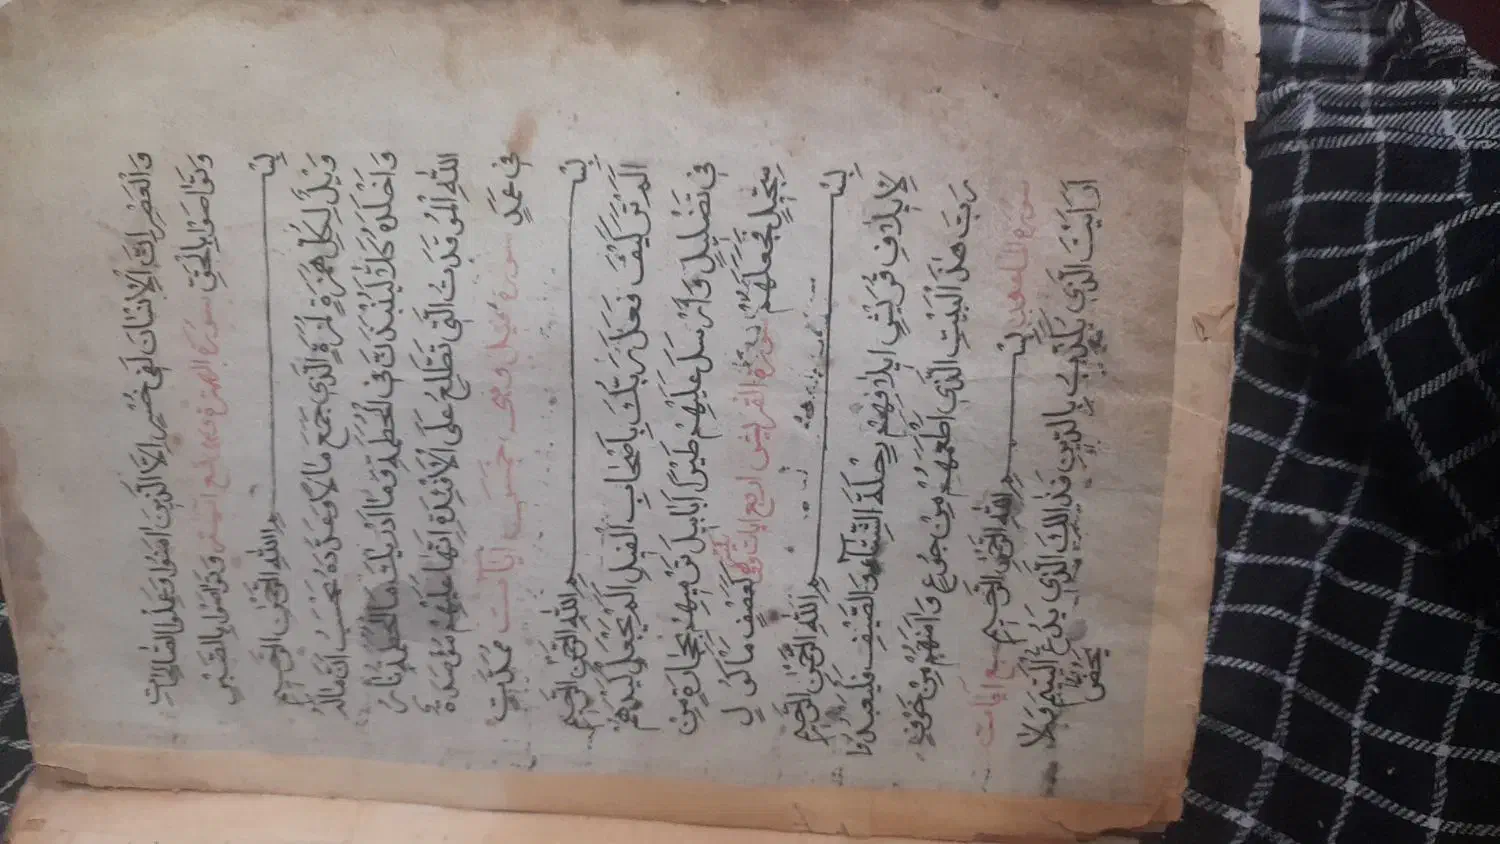 وَالْعَصْرِ اِنَّ الْاِنْسَانَ لَفِى خُسْرٍ اِلَّا الَّذِينَ اٰمَنُوا وَعَمِلُوا الصَّالِحَاتِ
وَتَوَاصَوْا بِالْحَقِّ وَتَوَاصَوْا بِالصَّبْرِ سورة الهمزة
بِسْمِ اللّٰهِ الرَّحْمٰنِ الرَّحِيمِ
وَيْلٌ لِكُلِّ هُمَزَةٍ لُمَزَةٍ الَّذِى جَمَعَ مَالًا وَعَدَّدَهُ يَحْسَبُ اَنَّ مَالَهُ
اَخْلَدَهُ كَلَّا لَيُنْبَذَنَّ فِى الْحُطَمَةِ وَمَا اَدْرٰيكَ مَا الْحُطَمَةُ نَارُ
اللّٰهِ الْمُوقَدَةُ الَّتِى تَطَّلِعُ عَلَى الْاَفْئِدَةِ اِنَّهَا عَلَيْهِمْ مُؤْصَدَةٌ
فِى عَمَدٍ مُمَدَّدَةٍ سورة فيل خمس اٰيات
بِسْمِ اللّٰهِ الرَّحْمٰنِ الرَّحِيمِ
اَلَمْ تَرَ كَيْفَ فَعَلَ رَبُّكَ بِاَصْحَابِ الْفِيلِ اَلَمْ يَجْعَلْ كَيْدَهُمْ
فِى تَضْلِيلٍ وَاَرْسَلَ عَلَيْهِمْ طَيْرًا اَبَابِيلَ تَرْمِيهِمْ بِحِجَارَةٍ مِنْ
سِجِّيلٍ فَجَعَلَهُمْ كَعَصْفٍ مَأْكُولٍ سورة القريش اربع ايات
بِسْمِ اللّٰهِ الرَّحْمٰنِ الرَّحِيمِ
لِاِيلَافِ قُرَيْشٍ اِيلَافِهِمْ رِحْلَةَ الشِّتَاءِ وَالصَّيْفِ فَلْيَعْبُدُوا
رَبَّ هٰذَا الْبَيْتِ الَّذِى اَطْعَمَهُمْ مِنْ جُوعٍ وَاٰمَنَهُمْ مِنْ خَوْفٍ
سورة الماعون سبع اٰيات
بِسْمِ اللّٰهِ الرَّحْمٰنِ الرَّحِيمِ
اَرَاَيْتَ الَّذِى يُكَذِّبُ بِالدِّينِ فَذٰلِكَ الَّذِى يَدُعُّ الْيَتِيمَ وَلَا
يَحُضُّ